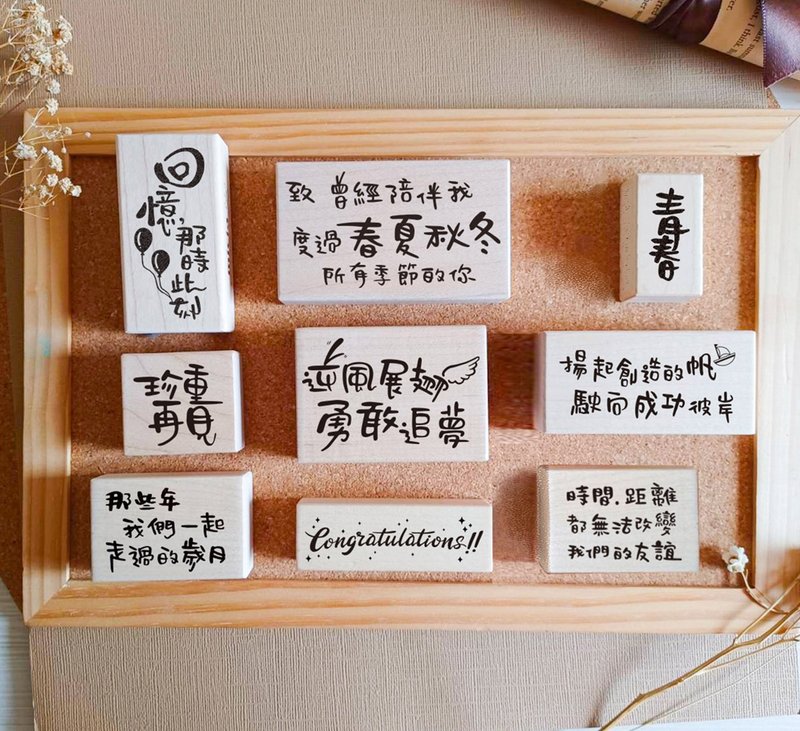 回
憶,
那時
此刻
致 曾經陪伴我
度過春夏秋冬
所有季節的你
青春
珍重
再見
逆風展翅
勇敢追夢
揚起創造的帆
駛向成功彼岸
那些年
我們一起
走過的歲月
Congratulations!!
時間.距離
都無法改變
我們的友誼